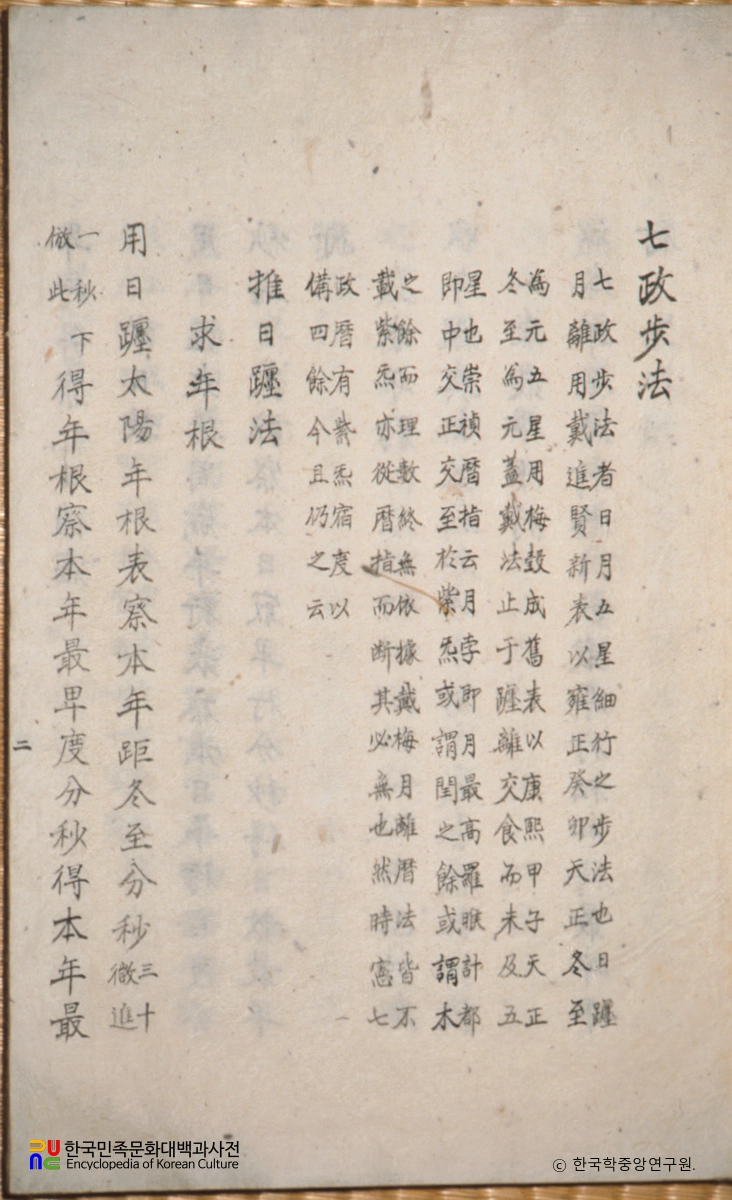 七政步法
七政步法者日月五星細行之步法也日躔
月離用戴進賢新表以雍正癸卯天正冬至
為元五星用梅瑴成舊表以康熙甲子天正
冬至為元蓋戴法止于躔離交食而未及五
星也崇禎曆指云月孛即月最高羅睺計都
即中交正交至於紫炁或謂閏之餘或謂木
之餘而理數終無依據戴梅月離曆法皆不
載紫炁亦從曆指而断其必無也然時憲七
政曆有紫炁宿度以
備四餘今且仍之云
推日躔法
求年根
用日躔太陽年根表察本年距冬至分秒三十
微進
一秋下
倣此
得年根察本年最卑度分秒得本年最
二
한국민족문화대백과사전
Encyclopedia of Korean Culture
© 한국학중앙연구원.